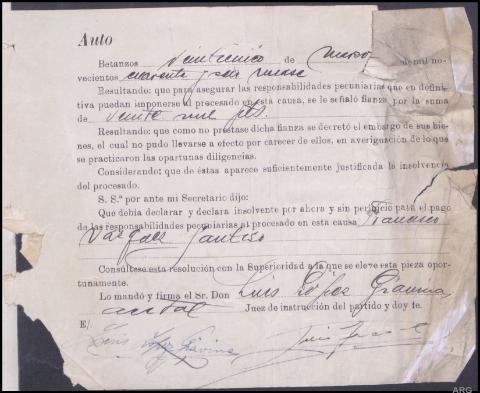 Auto
Betanzos veinticinco de marzo de mil no-
vecientos cuarenta y seis
Resultando: que para asegurar las responsabilidades pecuniarias que en defini-
tiva puedan imponerse al procesado en esta causa, se le señaló fianza por la suma
de veinte mil pts.
Resultando: que como no prestase dicha fianza se decretó el embargo de sus bie-
nes, el cual no pudo llevarse a efecto por carecer de ellos, en averiguación de lo que
se practicaron las oportunas diligencias.
Considerando: que de éstas aparece suficientemente justificada la insolvencia
del procesado.
S. S.ª por ante mi Secretario dijo:
Que debía declarar y declara insolvente por ahora y sin perjuicio para el pago
de las responsabilidades pecuniarias al procesado en esta causa Francisco
Vazquez
Consúltese esta resolución con la Superioridad a la que se eleve esta pieza opor-
tunamente.
Lo mandó y firma el Sr. Don Luis López
Juez de instrucción del partido y doy fe.
E/.
Luis López
ARG